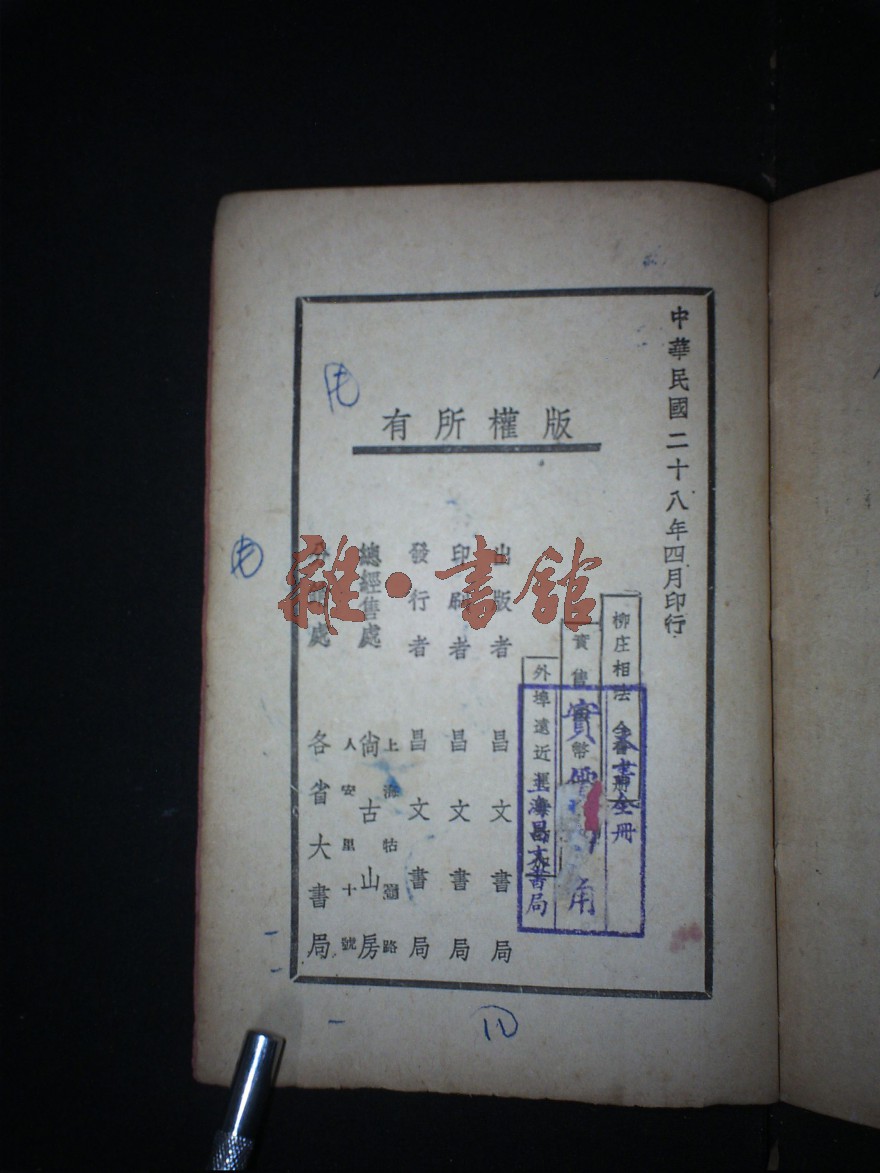 中華民國二十八年四月印行
版權所有
柳庄相法
外埠遠近
本書全冊
實價
角
上海昌文書局
出版者 昌文書局
印刷者 昌文書局
發行者 昌文書局
總經售處 尚古山房
上海牯嶺路
人安里十號
各省大書局
雜·書館